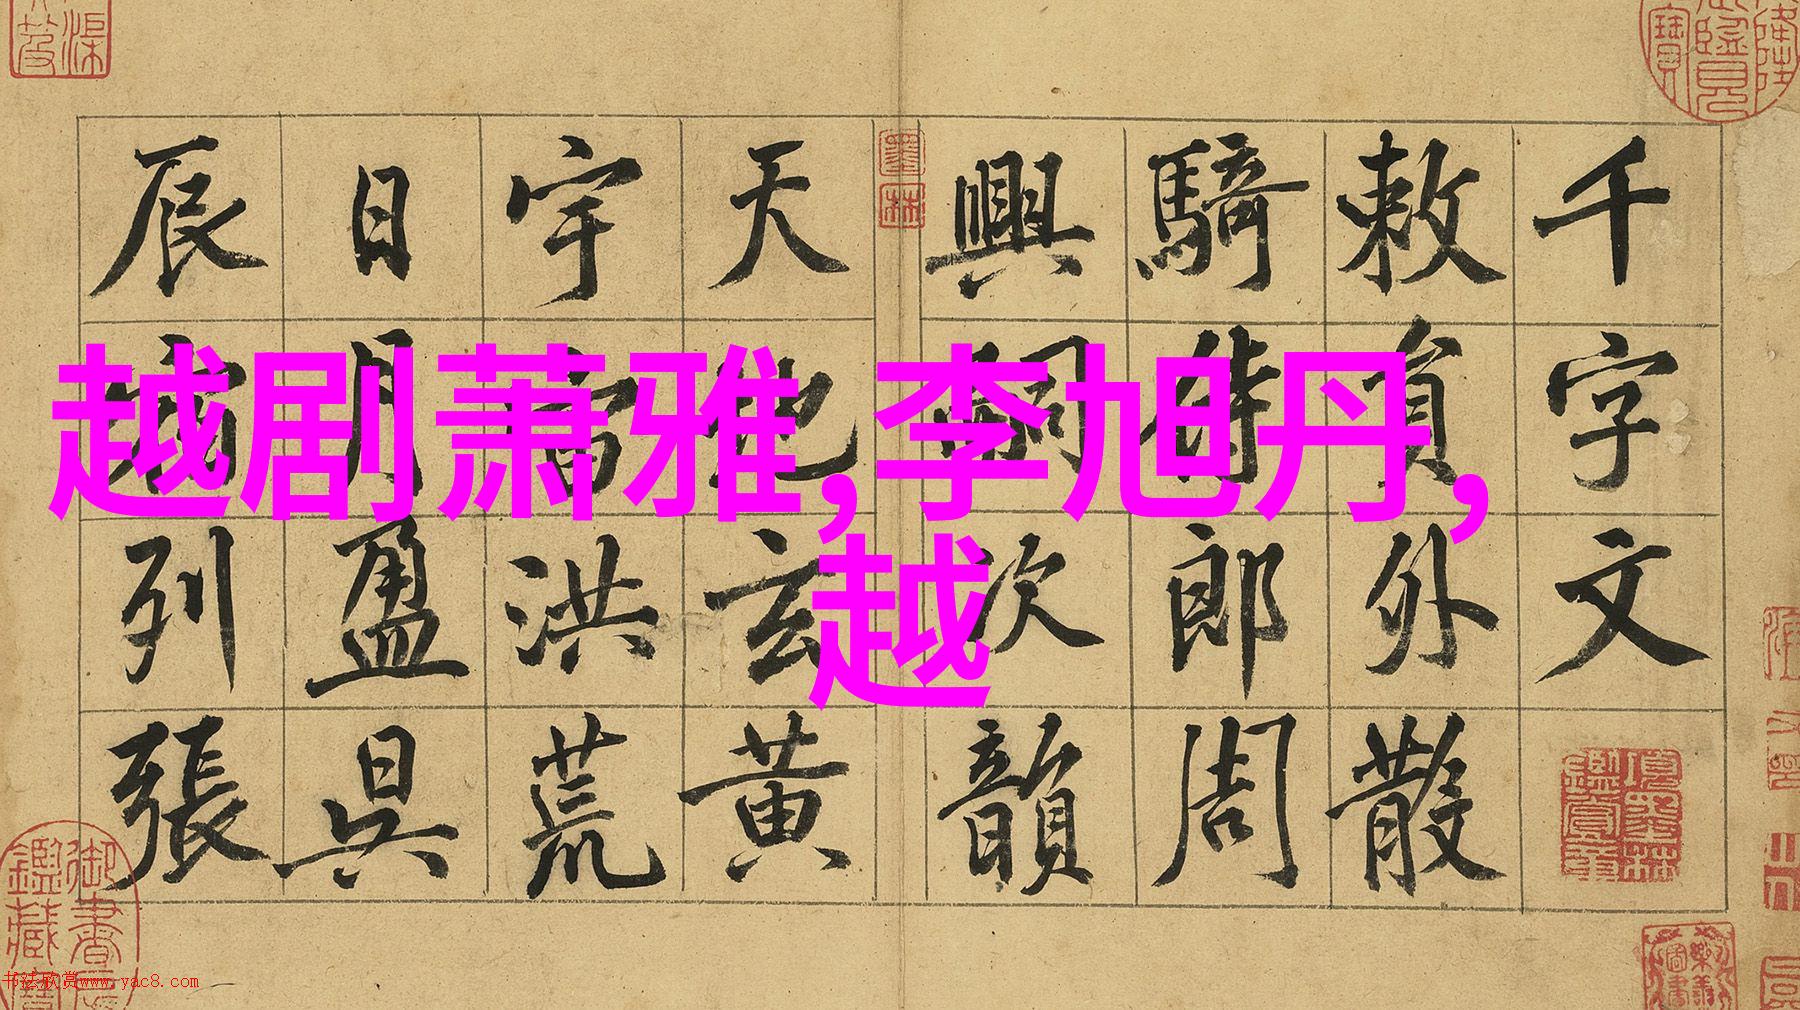 越剧萧雅,李旭丹,
越
千字文
敕員外散
騎侍郎周
興嗣次韻
天地玄黄
宇宙洪荒
日月盈昃
辰宿列張
墨林
书法欣赏www.yac8.com